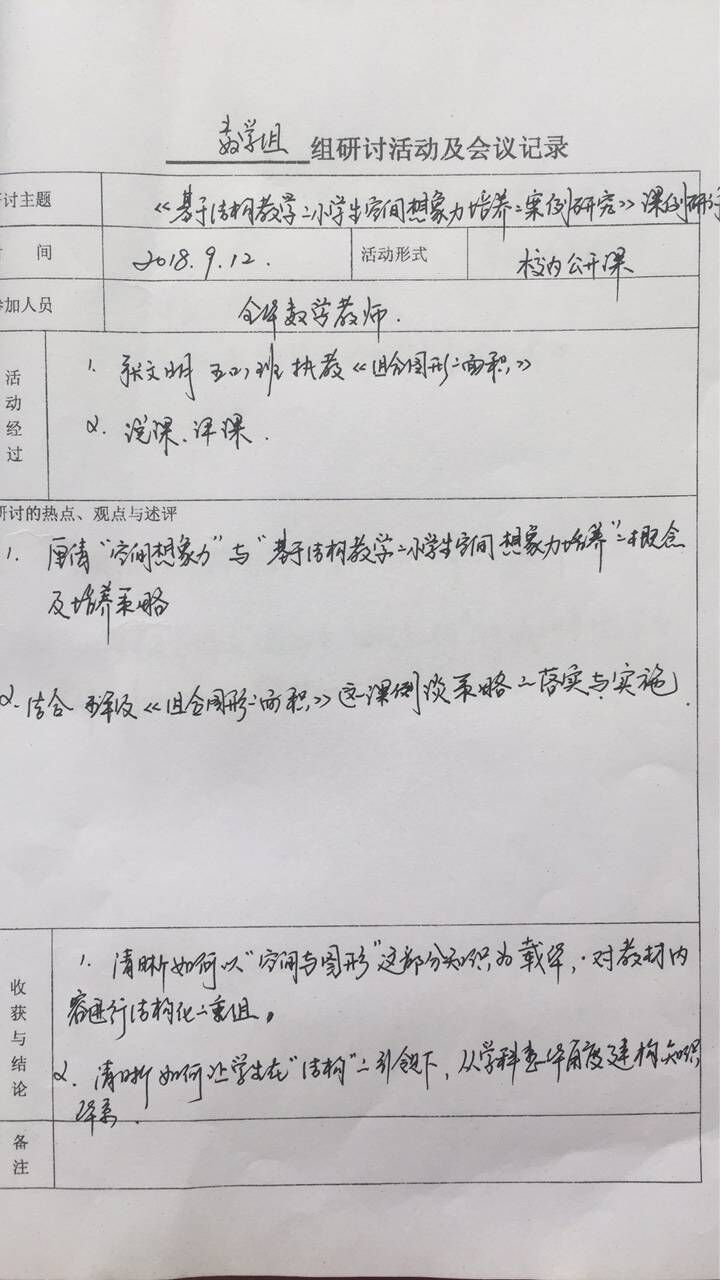 数学组 组研讨活动及会议记录
讨主题 《基于结构教学的小学生空间想象力培养的案例研究》课例研讨
间 2018.9.12. 活动形式 校内公开课
参加人员 全体数学教师.
活动经过
1. 张文明 五(2)班 执教《组合图形的面积》
2. 说课、评课.
研讨的热点、观点与述评
1. 厘清“空间想象力”与“基于结构教学的小学生空间想象力培养”的概念
及培养策略
2. 结合 五年级《组合图形的面积》这一课例谈策略的落实与实施.
收获与结论
1. 清晰如何以“空间与图形”这部分知识为载体,对教材内
容进行结构化的重组。
2. 清晰如何让学生在“结构”的引领下,从学科整体角度建构知识
体系.
备注